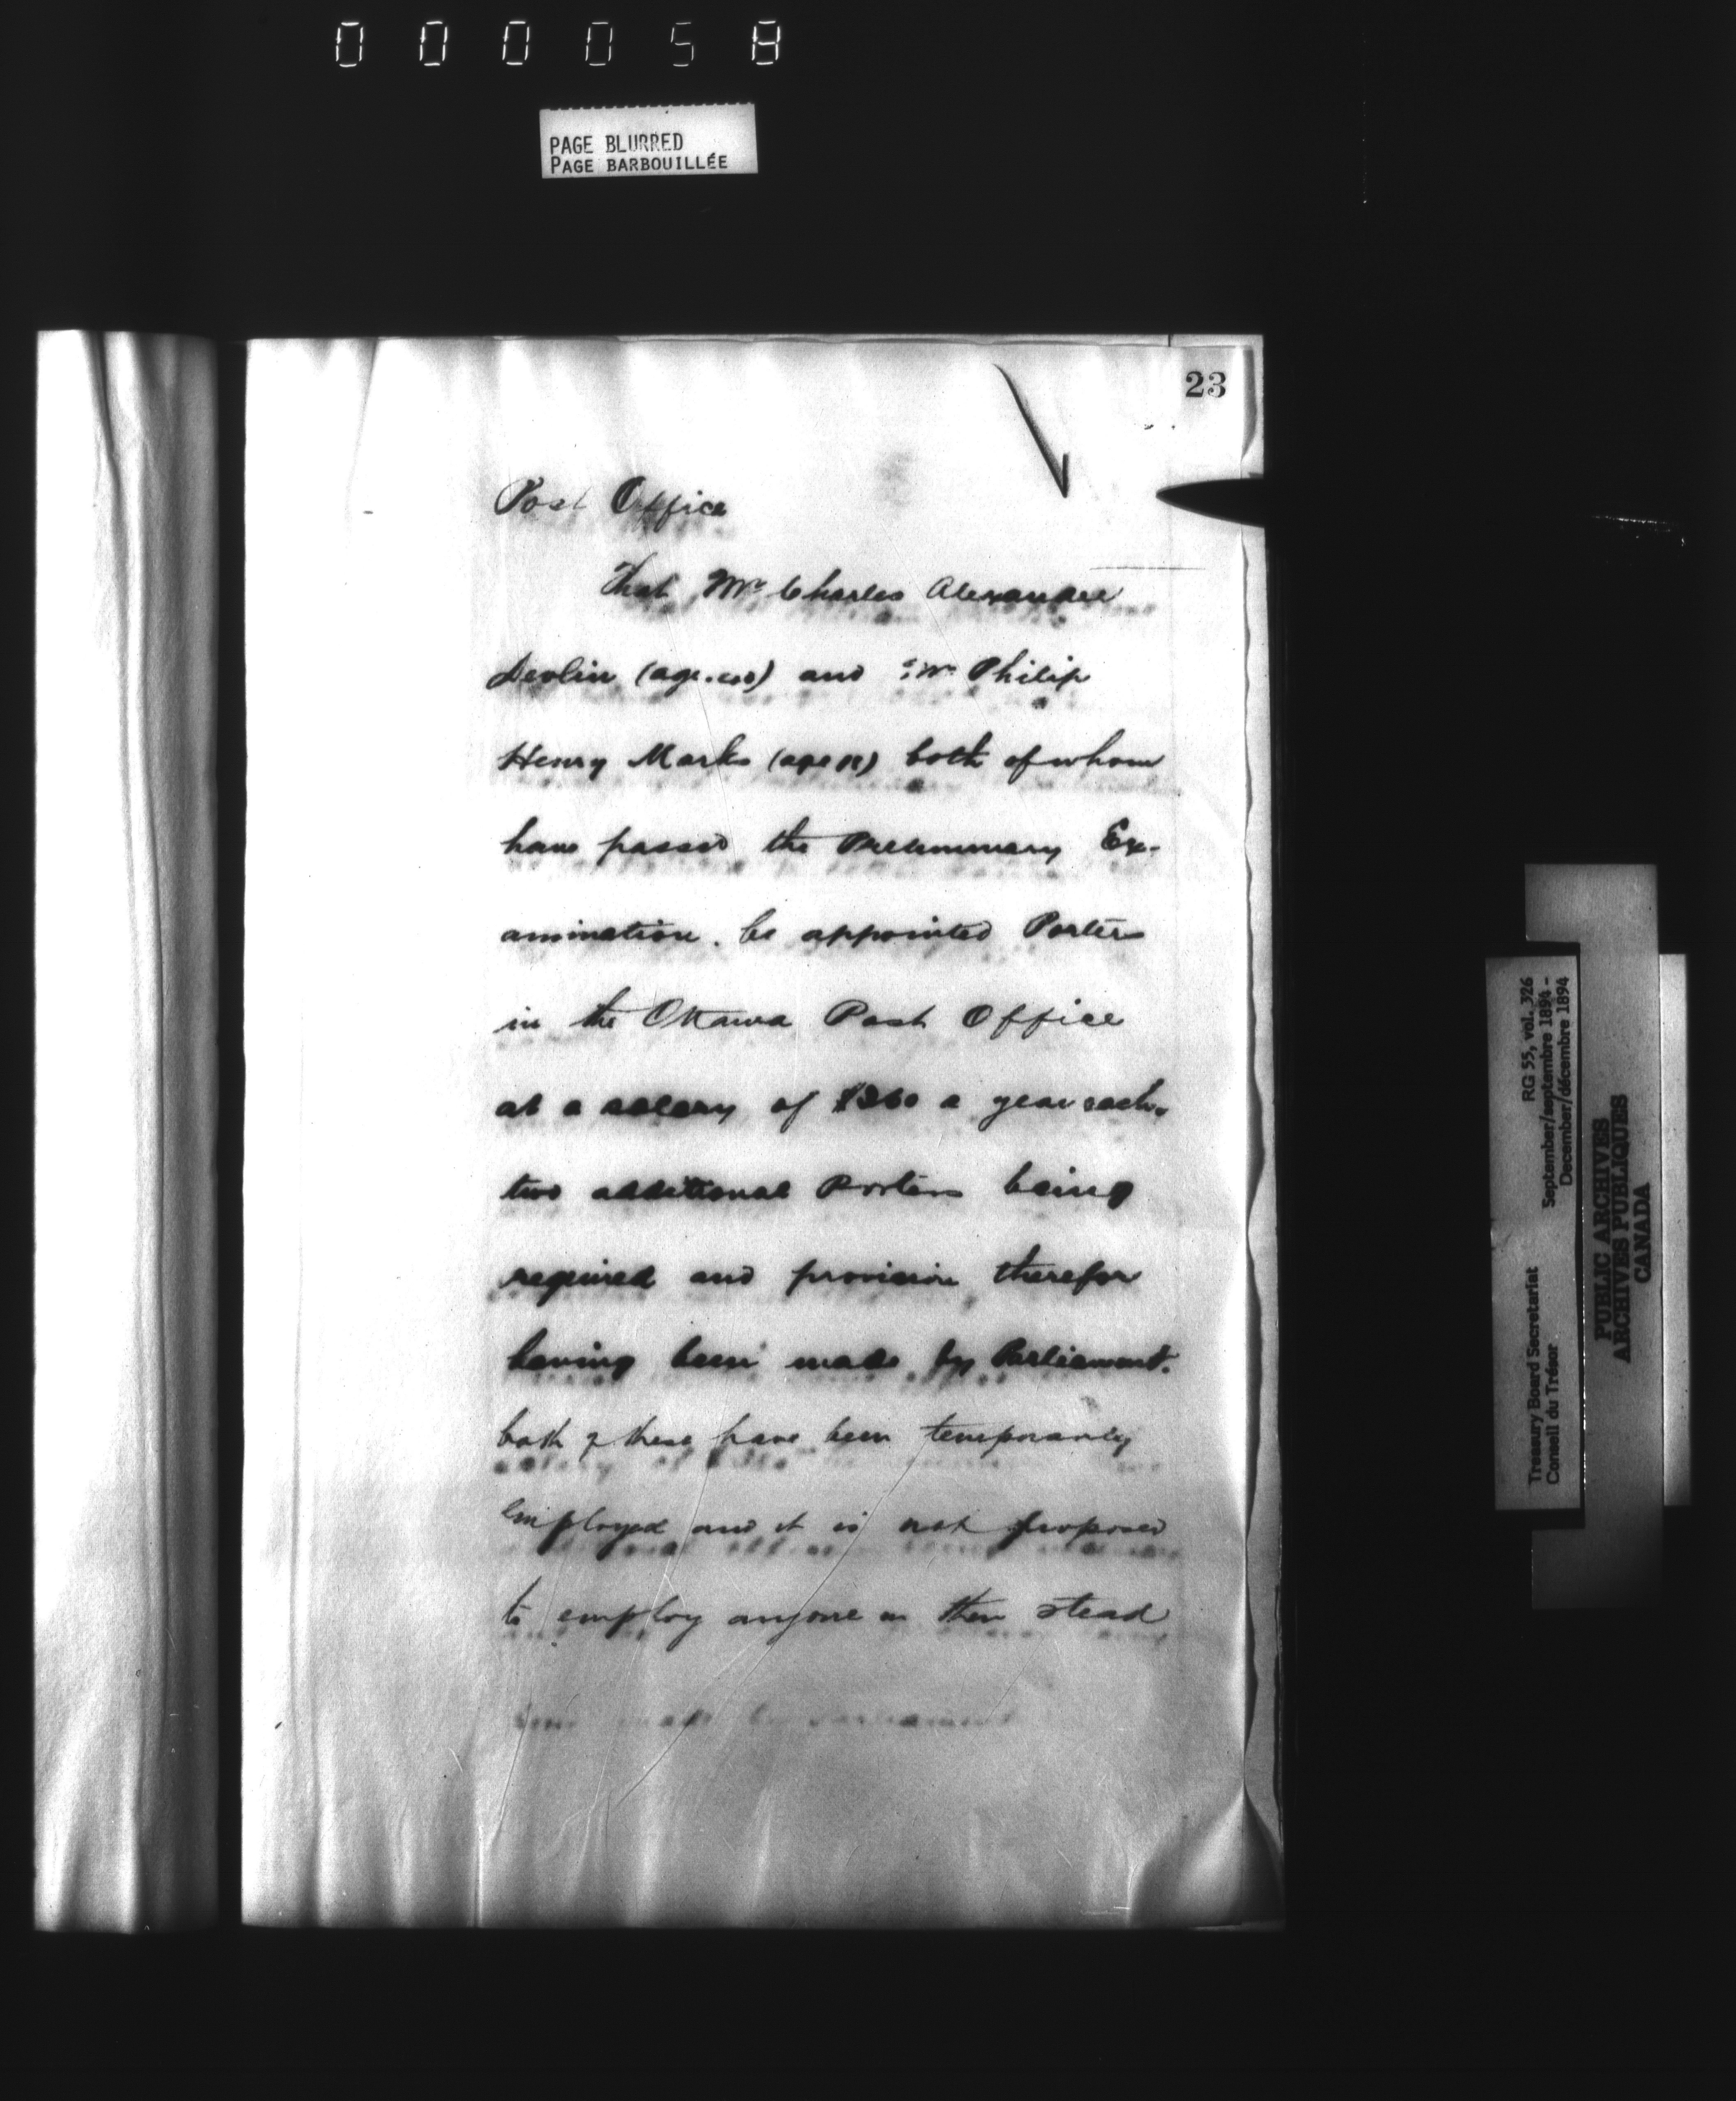 000058
PAGE BLURRED
PAGE BARBOUILLÉE
23
Post Office
That Mr Charles Alexander
Devlin (age) and Mr Philip
Henry Marks (age) both of whom
have passed the Preliminary Ex-
amination. be appointed Porters
in the Ottawa Post Office
at a salary of $360 a year each,
two additional Porters being
required and provision therefor
having been made by Parliament.
both of these have been temporarily
employed and it is not proposed
to employ anyone in their stead
made by Parliament
Treasury Board Secretariat RG 55, vol. 326
Conseil du Trésor September/septembre 1894 -
December/décembre 1894
PUBLIC ARCHIVES
ARCHIVES PUBLIQUES
CANADA